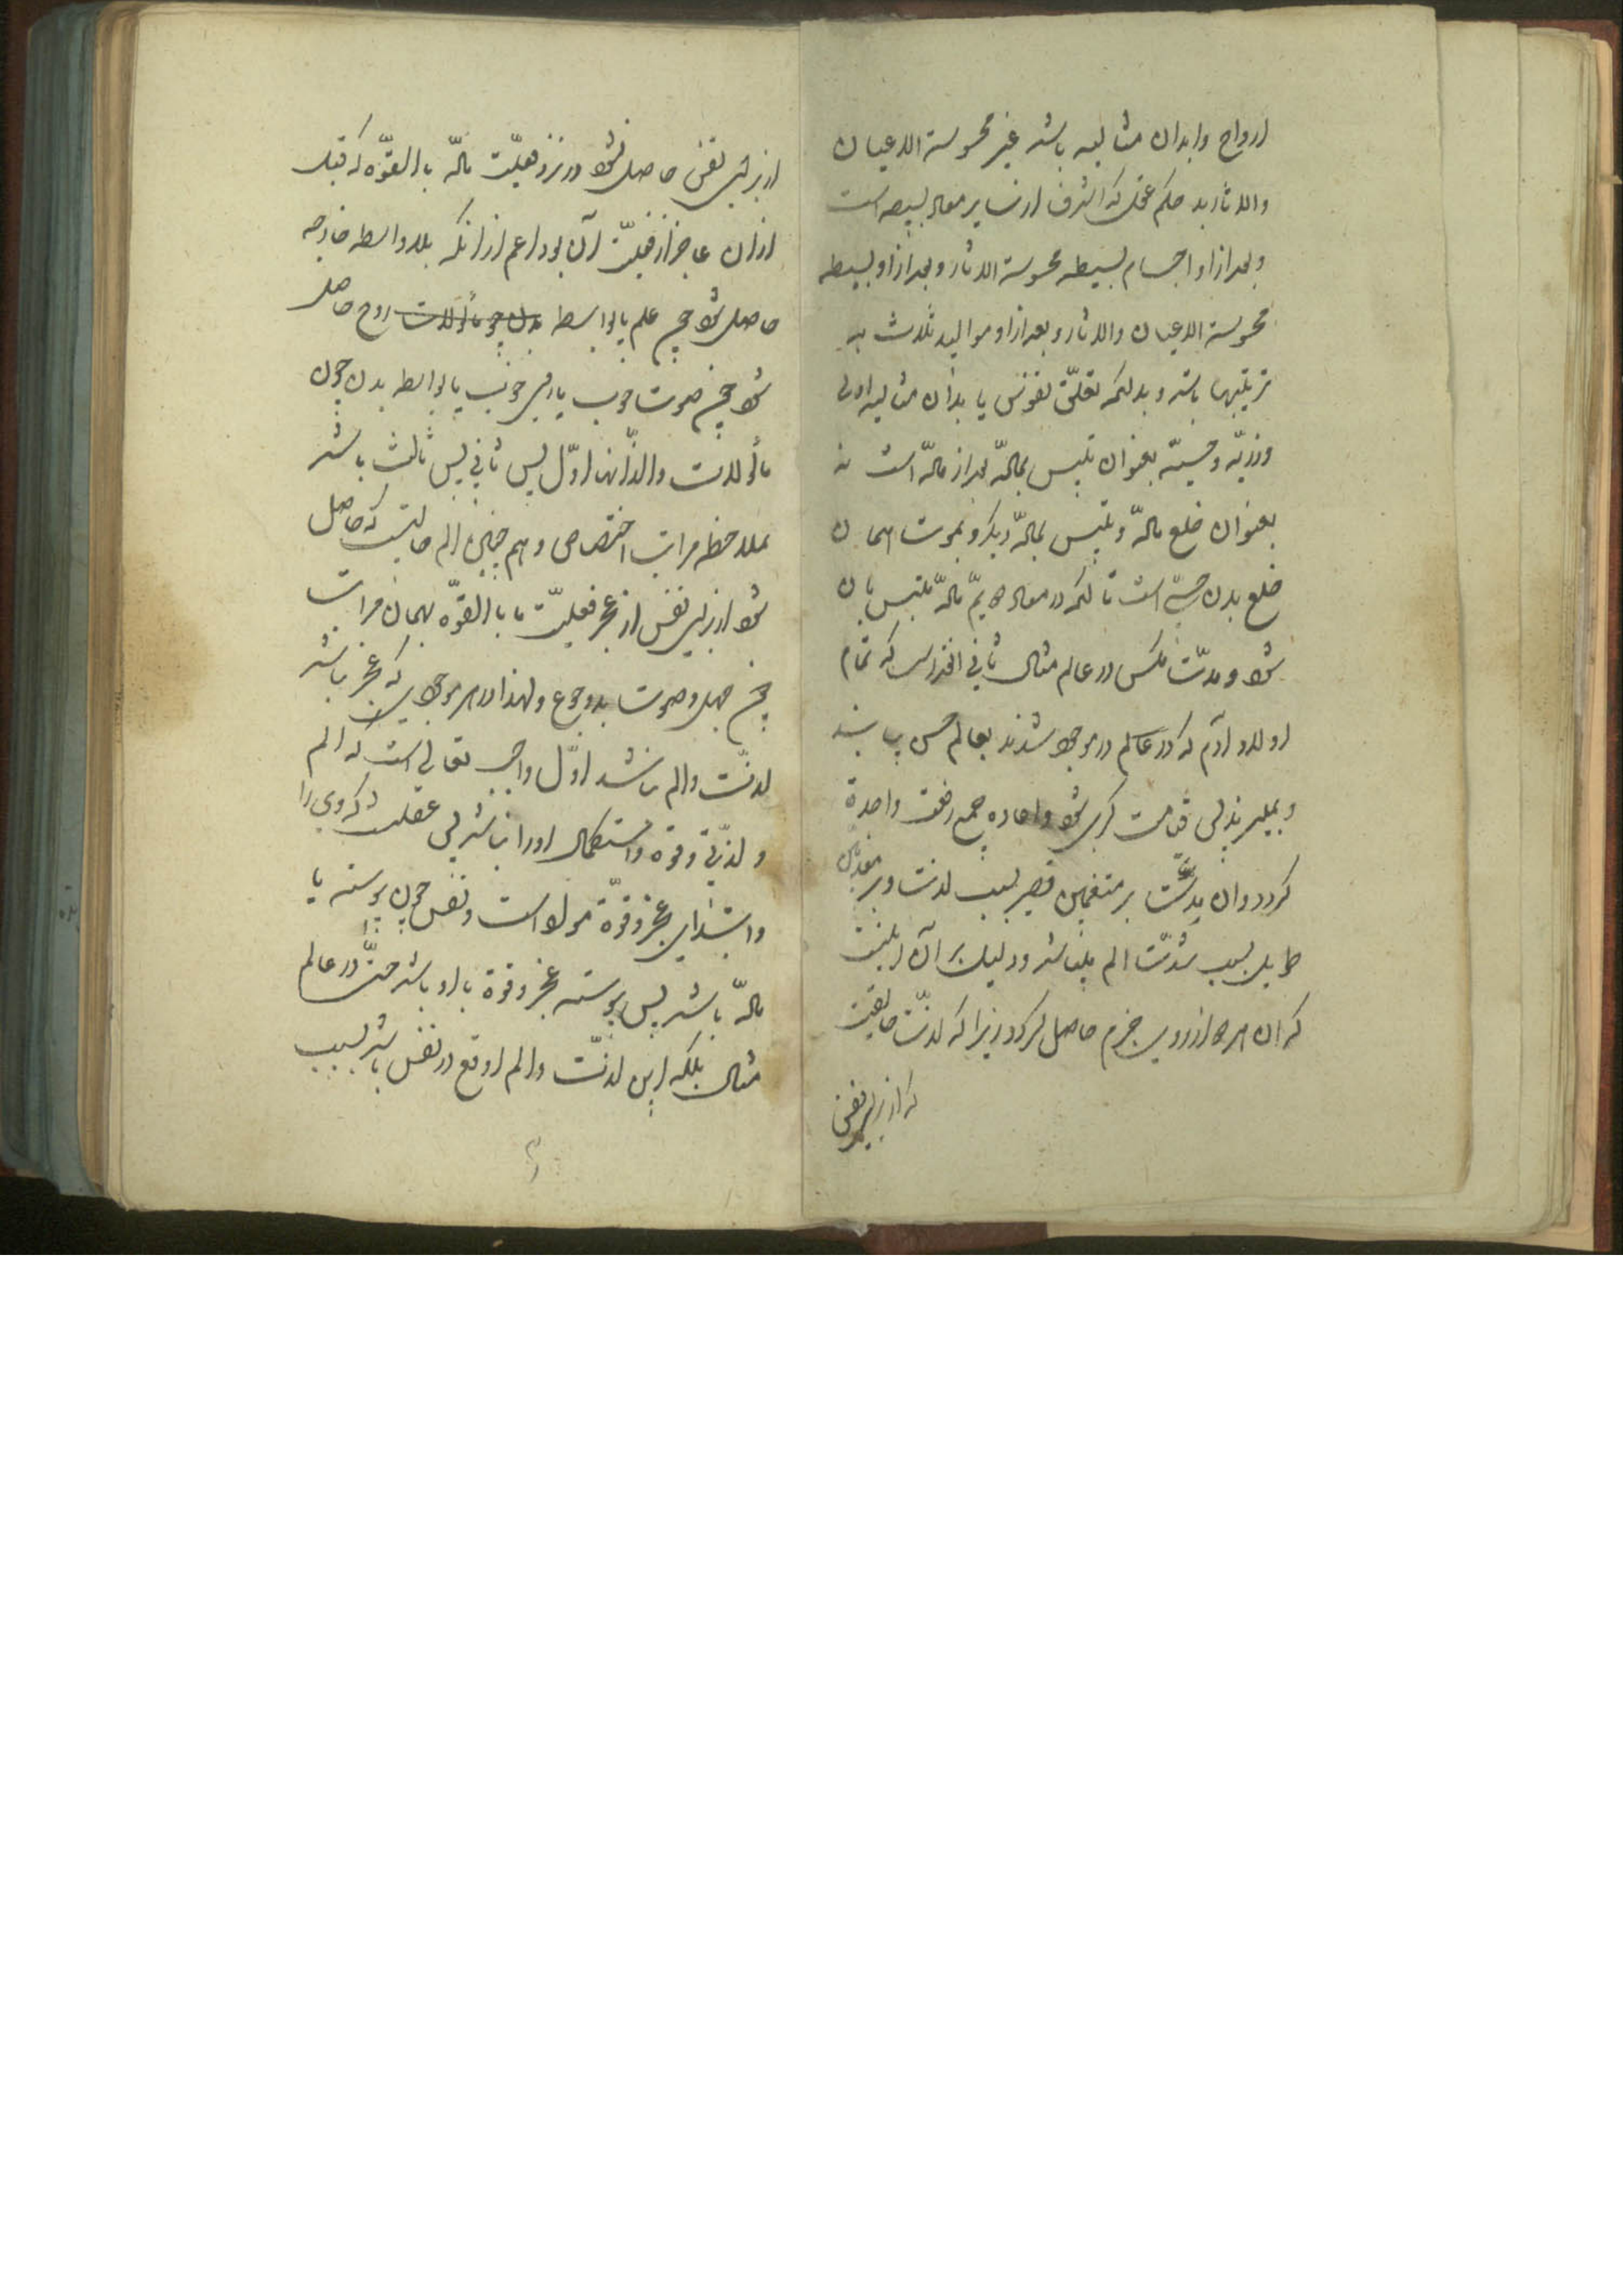 ارواح و ابدان مثالیه باشد غیر محسوسة الاعیان
والاثار بد حکم عقل که اشرف از سایر مواد بسیطه است
و بعد از او اجسام بسیطه محسوسة الاثار و بعد از او بسیطه
محسوسة الاعیان والاثار و بعد از او موالید ثلاث به
ترتیبها باشد و بدانکه تعلّق نفوس با بدان مثالیه اولی
وذریّه وحسیّه بعنوان تلبس بمادّه بعد از مادّه است نه
بعنوان خلع مادّه و تلبس بمادّه دیگر و بموت همان
خلع بدن حسیّ است تا آنکه در معاد هم مادّه ملتبس بان
شود و مدّت مکس در عالم مثال ثانی انقدر است که تمام
اولاد آدم که در عالم در موجود شدند بعالم حس بیایند
و بمیرند پس قیامت کبری شود و اعاده جمع دفعت واحدة
کردد و ان مدّت بر متنعمین قصیر بسبب لذت و بر معذبین
طویل بسبب شدّت الم باشد و دلیل بر آن اینست
که ان هر دو از روی جزم حاصل کردد زیرا که لذّت حالتیست
که از برای نفس
از برای نفس حاصل شود در نزد فعلیّت مادّه بالقوّه که قبل
از ان عاجز از فعلیّت آن بود اعم از انکه بلا واسطه خارجه
حاصل شود چون علم یا بواسطه بدن چون ماکولات روح حاصل
شود چون صوت خوب یا دیر خوب یا بواسطه بدن چون
ماکولات والذّ انها اوّل پس ثانی پس ثالث باشد
بملاحظه مراتب اختصاص و هم چنین الم حالتیست که حاصل
شود از برای نفس از عجز فعلیّت ما بالقوّه بهمان مراتب
چون جهل و صوت بد و جوع و لهذا در هر موجودی که عجز نباشد
لذّت و الم نباشد اوّل واجب تعالی است که الم
و لذّتی و قوة و استکمال او را نباشد پس عقل که وی را
و ابتدای عجز و قوّة نبود است و نفس چون پیوسته با
مادّه باشد پس پیوسته عجز و قوة با او باشد حتّی در عالم
مثال بلکه این لذّت و الم اوقع در نفس باشد بسبب